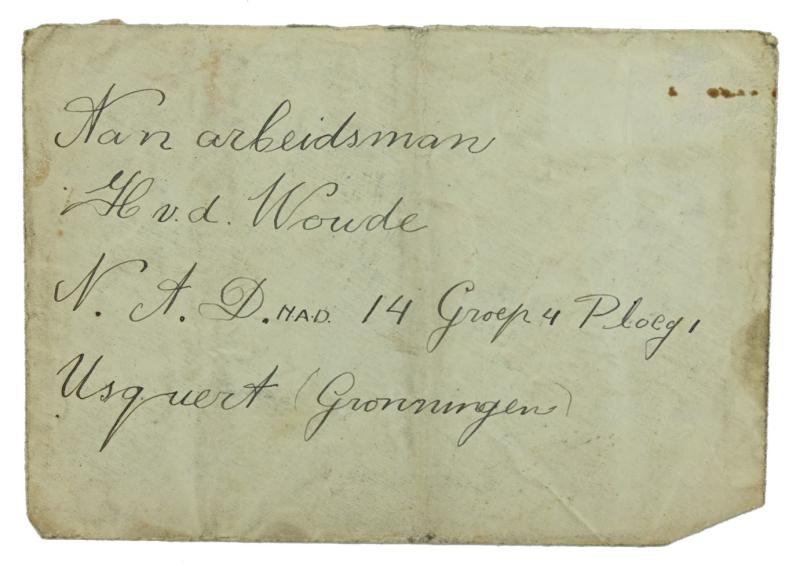 Aan arbeidsman
H v.d. Woude
N. A. D. NAD. 14 Groep 4 Ploeg 1
Usquert (Gronningen)